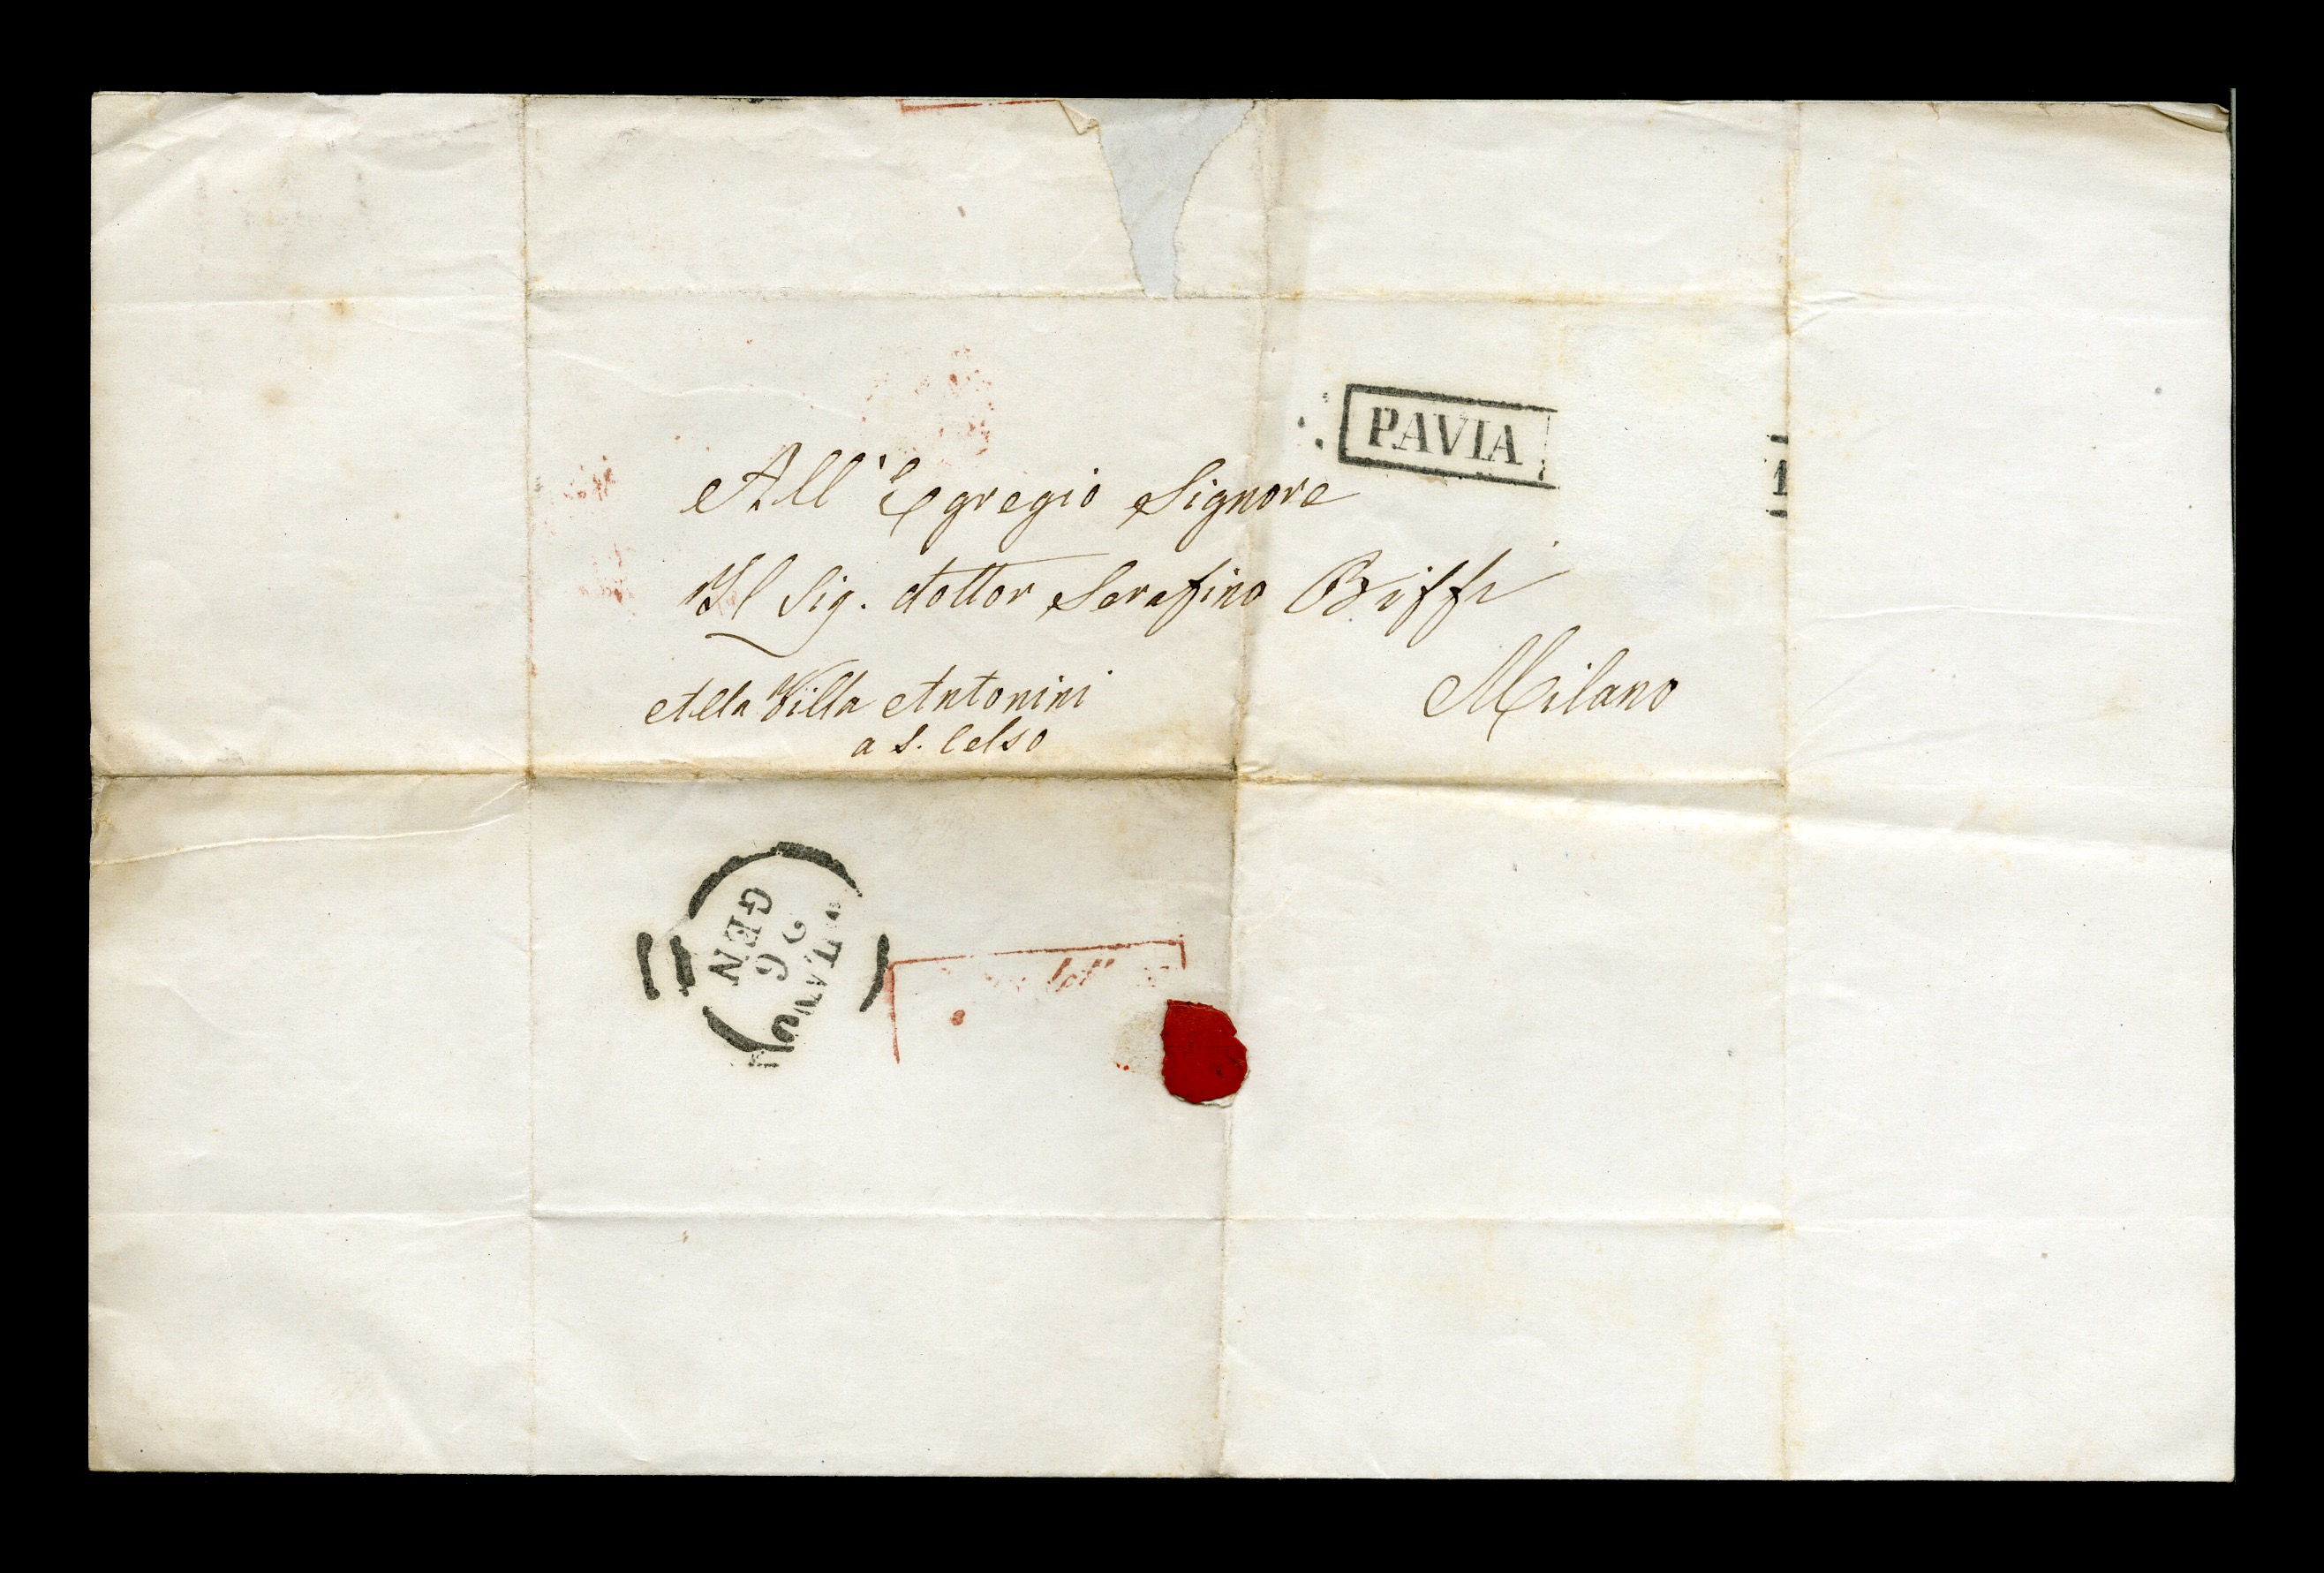 PAVIA
1
All'Egregio Signore
Il Sig. dottor Serafino Biffi
Milano
Alla Villa Antonini
a S. Celso
GEN